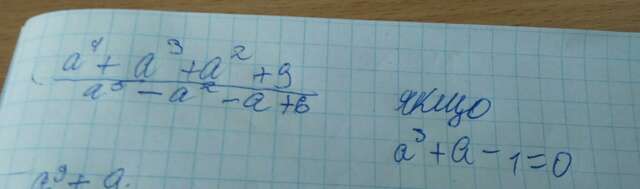 a⁴ + a³ + a² + 9
a⁵ - a² - a + 6
якщо
a³ + a - 1 = 0
a³ + a